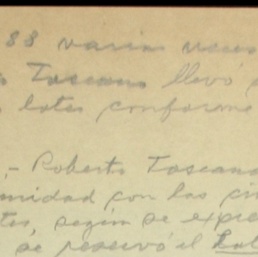 88 varias veces
Toscano llevó
lotes conforme
,- Roberto Toscano
midad con las
tes, según se expre
se reservó el Lot